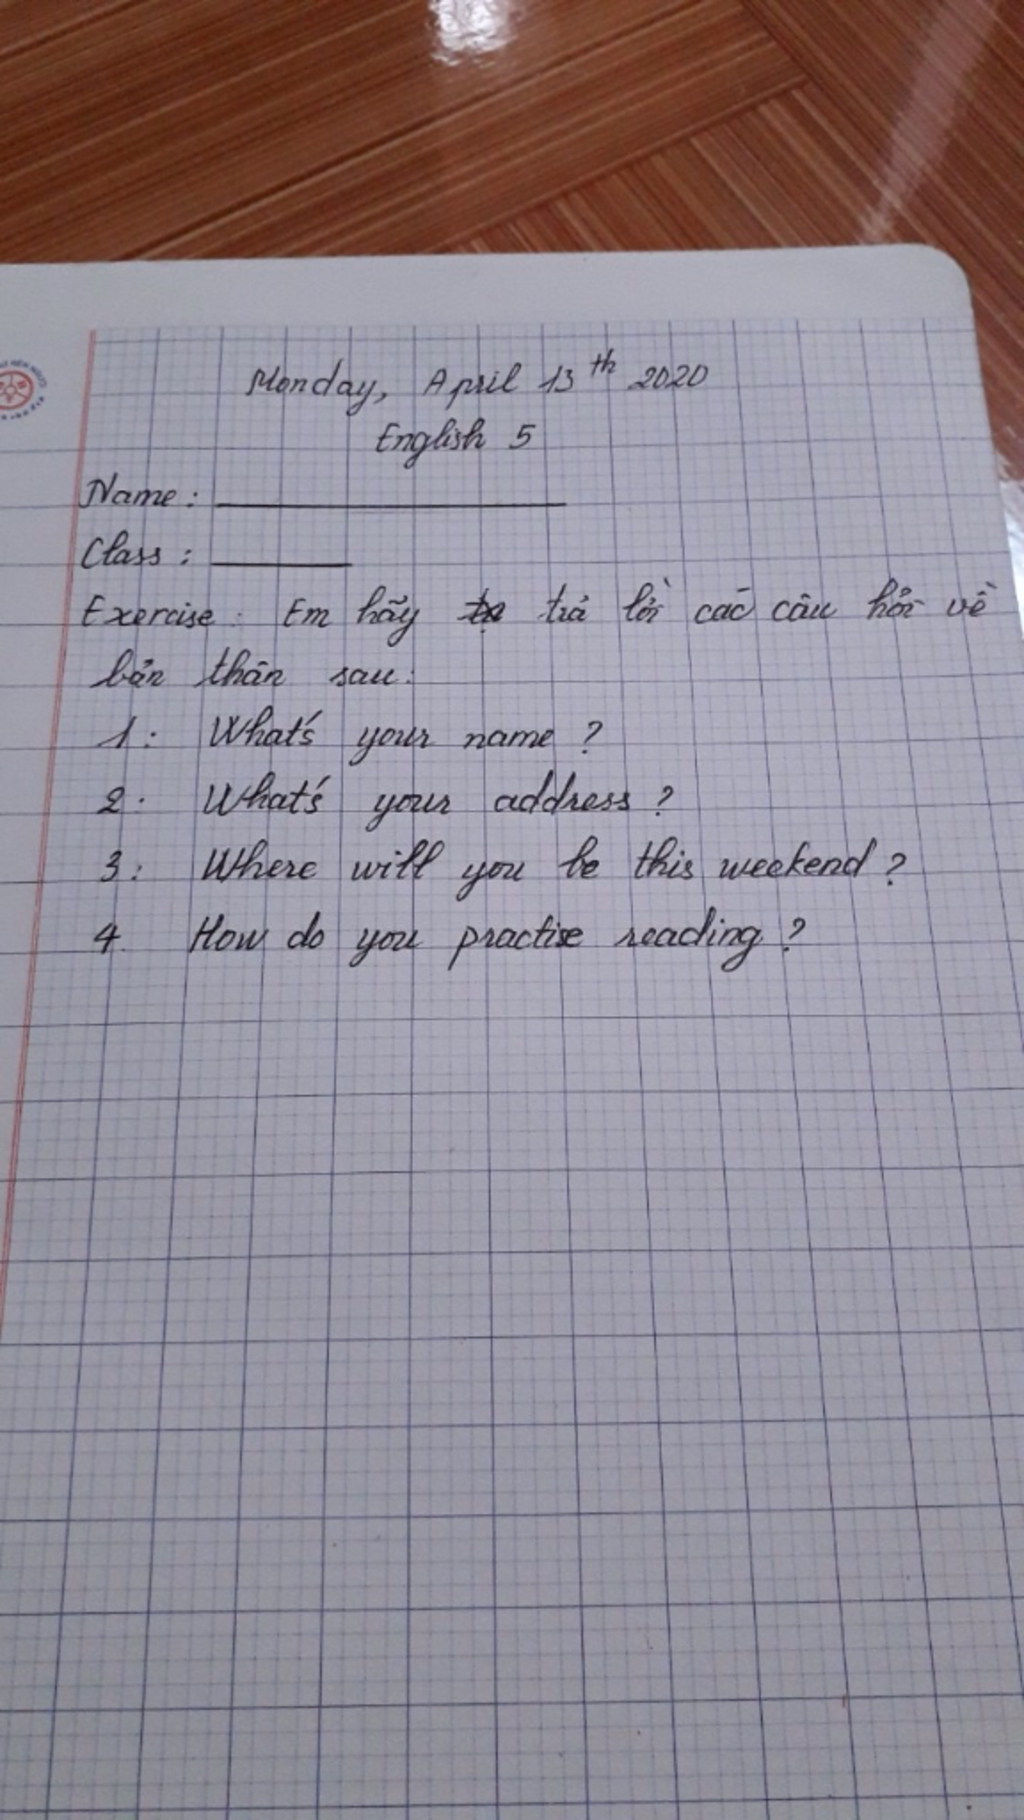 Monday, April 13th 2020
English 5
Name :
Class :
Exercise : Em hãy trả lời các câu hỏi về
bản thân sau:
1: What's your name ?
2: What's your address ?
3: Where will you be this weekend ?
4. How do you practise reading ?